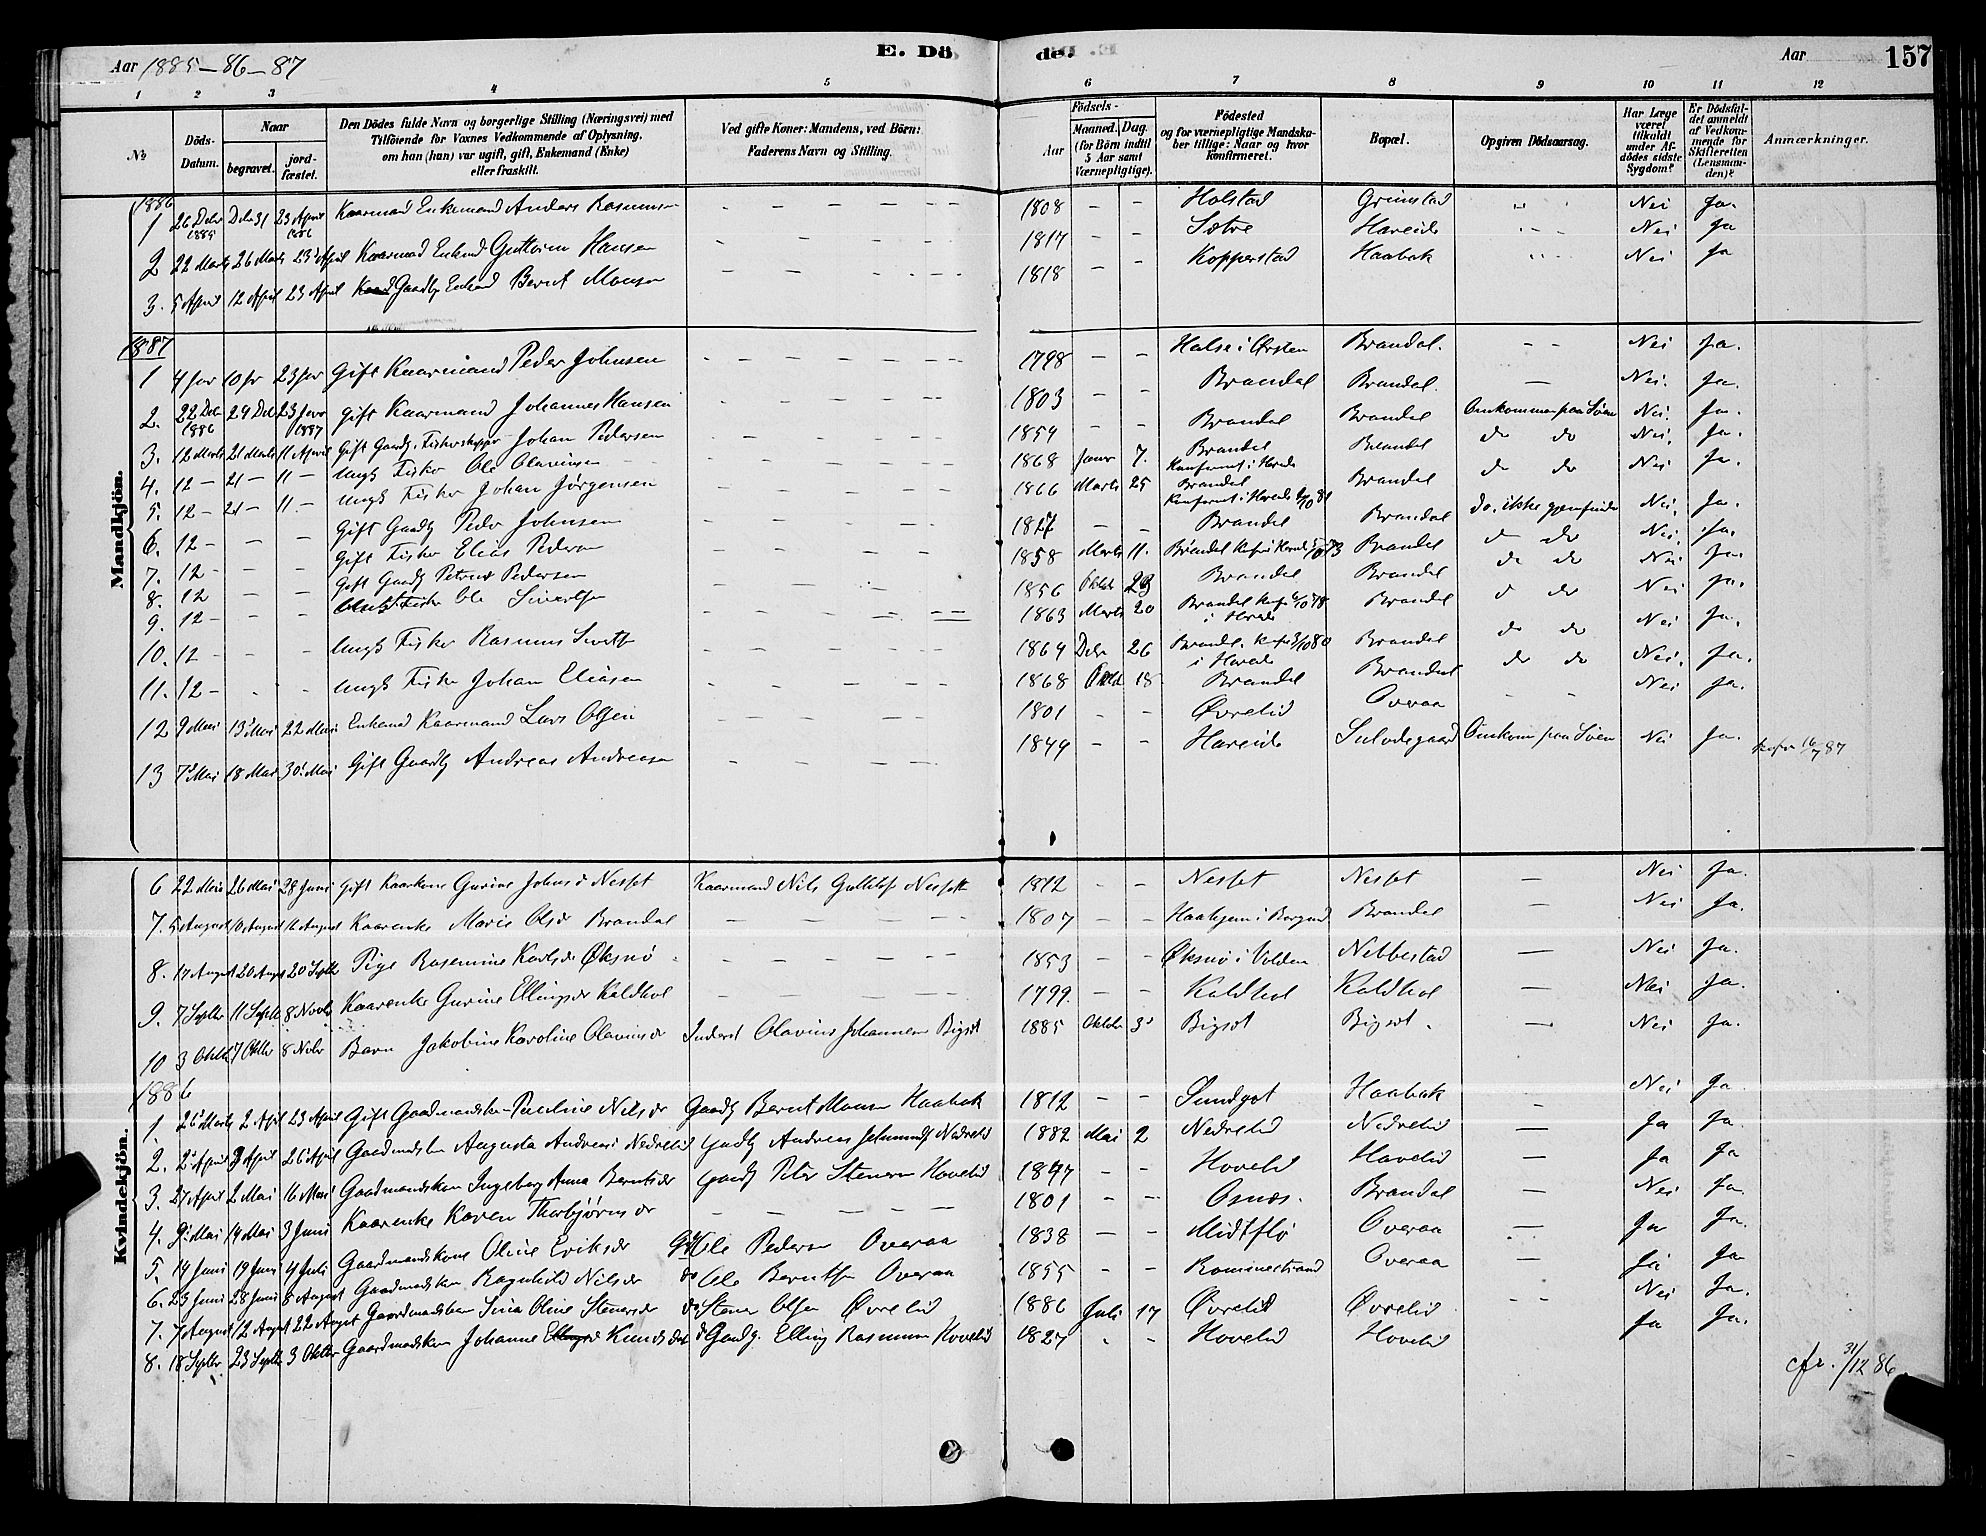 Aar 1885-86-87
E. Dö
de.
Aar
157
1 2 3 4 5 6 7 8 9 10 11 12
№
Döds-Datum.
Naar
begravet.
jordfæstet.
Den Dödes fulde Navn og borgerlige Stilling (Næringsvei) med
Tilföiende for Voxnes Vedkommende af Oplysning,
om han (hun) var ugift, gift, Enkemand (Enke)
eller fraskilt.
Ved gifte Koner: Mandens, ved Börn:
Faderens Navn og Stilling.
Födsels-
Aar
Maaned. Dag.
(for Börn indtil
5 Aar samt
Værnepligtige).
Födested
og for værnepligtige Mandska-
ber tillige: Naar og hvor
konfirmeret.
Bopæl.
Opgiven Dödsaarsag.
Har Læge
været
tilkaldt
under Af-
dödes sidste
Sygdom?
Er Dödsfal-
det anmeldt
af Vedkom-
mende for
Skifteretten
(Lensman-
den)?
Anmærkninger.
Mandkjön.
1886
1 26 Debr 1885 Debr 31 23 April 1886 Kaarmand Enkemand Anders Rasmussen 1808 - - Holstad Grimstad Nei Ja.
2 22 Marts 26 Marts 23 April Kaarmand Enkmd Guttorm Hansen 1817 - - Sætre Hareide Nei Ja
3. 5 April 12 April 23 April Gaardbr Enkmd Bernt Monsen 1818 - - Kopperstad Haabak Nei Ja
1887
1 4 Jar 10 Jr 23 Jar Gift Kaarmand Peder Johnsen 1798 - - Halse i Ørsten Brandal. - - Nei Ja.
2. 22 Debr 1886 29 Deb 23 Janr 1887 gift Kaarmand Johannes Hansen 1803 - - Brandal Brandal. - Nei. Ja.
3. 12 Marts 21 Marts 11 April Gift Gaardb, Fiskerskipper Johan Pedersen 1854 - - Brandal Brandal Omkommen paa Søen Nei. Ja.
4. 12 - 21 - 11 - Ungk Fisker Ole Olavsen 1868 Janr 7. Brandal Konfirmt i Hareide Brandal do do Nei. Ja.
5. 12 - 21 - 11 - Ungk Fisker Johan Jørgensen 1866 Marts 25 Brandal Konfirmt i Hareide Brandal do do Nei Ja.
6. 12 - - - Gift Gaardb Peder Johnsen 1827 - - Brandal Brandal do. ikke gjenfunden Nei. Ja.
7. 12 - - - Gift Fisker Elias Pedersen 1858 Marts 11. Brandal Brandal do do Nei. Ja.
8. 12 - - gift Gaardb Petrus Pedersen 1856 Oktbr 23 Brandal Brandal do do Nei Ja.
9. 12 - - - Fisker Ole Sivertsen 1863 Marts 20 Brandal i Hareide Brandal do do Nei Ja.
10. 12 - - - Ungk Fisker Rasmus Sivertsen 1864 Debr 26 Brandal i Hareide Brandal do do Nei Ja.
11. 12 - - - Ungk Fisker Johan Eliasen 1868 Oktbr 18 Brandal Brandal do do Nei. Ja.
12 9 Mai 13 Mai 22 Mai Enkmd Kaarmand Lars Olsen 1801 - - Øvrelid Overaa - - Nei Ja.
13 7 Mai 18 Mai 30 Mai Gift Gaardb Andreas Andreasen 1849 - - Hareide Omkom paa Søen Nei Ja. 16/7 87
Kvindekjön.
6 22 Mai 26 Mai 28 Juni Gift Kaarkone Gurine Johnsd Nesset Kaarmand Nils Nesset 1812 - - Nesset Nesset - Nei Ja.
7. 5 August 10 August 16 August Kaarenke Marie Olsdr Brandal 1807 - - Haahjem i Borgund Brandal - Nei Ja.
8. 17 August 20 Augst 20 Septbr Pige Rasmine Karlsdr Øksnø 1853 - - Øksnø i Volden Nebbestad - Nei Ja.
9. 7 Septbr 11 Septbr 8 Novbr Kaarenke Gurine Ellingsdr Kaldhol 1799. - - Kaldhol Kaldhol - Nei Ja.
10 3 Oktbr 7 Oktbr 8 Nvbr Barn Jakobine Karoline Olavinsdr Inderst Olavius Johannesen Bigset 1885 Oktbr 3 Bigset Bigset. - Nei Ja.
1886
1 26 Marts 2 April 23 April Gift Gaardmandskone Pauline Nilsdr Gaardb Bernt Monsen Haabak 1812 - - Sundgot Haabak - Nei Ja.
2. 2 April 9 April 26 April Gaardmdsbn Augusta Andreasd Nedrelid Gaardb Andreas Nedrelid 1882 Mai 2 Nedrelid Nedrelid - Ja Ja.
3. 27 April 2 Mai 16 Mai Gaardmandskone Ingeborg Anna Berntsdr Gaardb Peter Stenersen Hovelid 1847 - - Hovelid Hovelid - Ja Ja
4. 9 Mai 14 Mai 3 Juni Kaarenke Karen Thorbjørnsdr - - - 1801 - - Osnes. Brandal - Nei Ja.
5. 14 Juni 19 Juni 4 Juli Gaardmandskone Oline Eriksdr Ole Pedersen Overaa 1838 - - Midtflø Overaa - Ja Ja.
6. 23 Juni 28 Juni 8 August Gaardmandskone Ragnhild Nilsdr do Ole Berntsen Overaa 1855 - - Rominestrand Overaa - Ja Ja
7. 7 August 12 Augst 22 Augst Gaardmandsbarn Sina Oline Stenersdr do Stener Olsen Øvrelid 1886 Juli 17 Øvrelid Øvrelid - - Nei Ja.
8. 18 Septbr 23 Septbr 3 Oktbr Gaardmandskone Johanne Knudsdr do Gaardb. Elling Rasmussen Hovelid 1827 - - Hovelid Hovelid Ja Ja.
cfr. 31/12 86